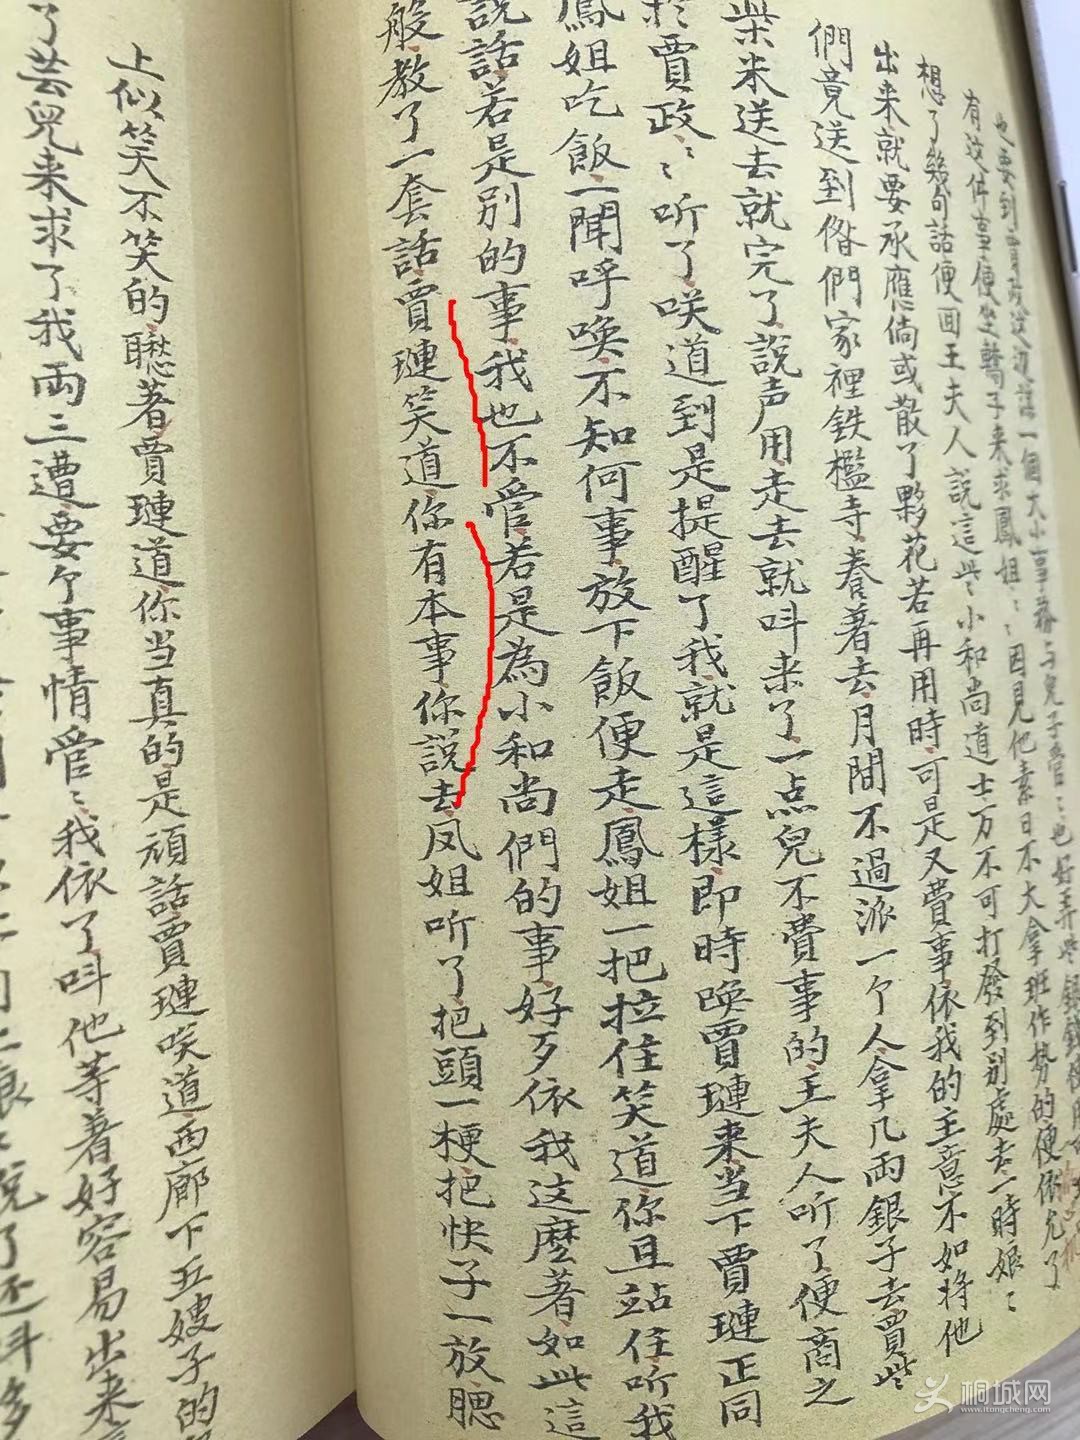 也要到賈政这边說一個大小事務与兒子管〻也好弄些銀錢使用
有这件事便坐轎子来求鳳姐〻因見他素日不大拿班作势的便依允了
想了幾句話便回王夫人說這些小和尚道士万不可打發到别處去一時娘〻
出来就要承應倘或散了夥花若再用時可是又費事依我的主意不如将他
們竟送到偺們家裡鉄檻寺養著去月間不過派一个人拿几両銀子去買些
柴米送去就完了說声用走去就呌来了一点兒不費事的王夫人听了便商之
於賈政〻听了咲道到是提醒了我就是這樣即時喚賈璉来当下賈璉正同
鳳姐吃飯一聞呼喚不知何事放下飯便走鳳姐一把拉住笑道你且站住听我
說話若是别的事我也不管若是為小和尚們的事好歹依我这麼著如此這
般教了一套話賈璉笑道你有本事你說去凤姐听了把頭一梗把快子一放腮
上似笑不笑的瞅著賈璉道你当真的是頑話賈璉咲道西廊下五嫂子的
了芸兒来求了我両三遭要个事情管〻我依了呌他等着好容易出来
桐城网
www.itongcheng.com